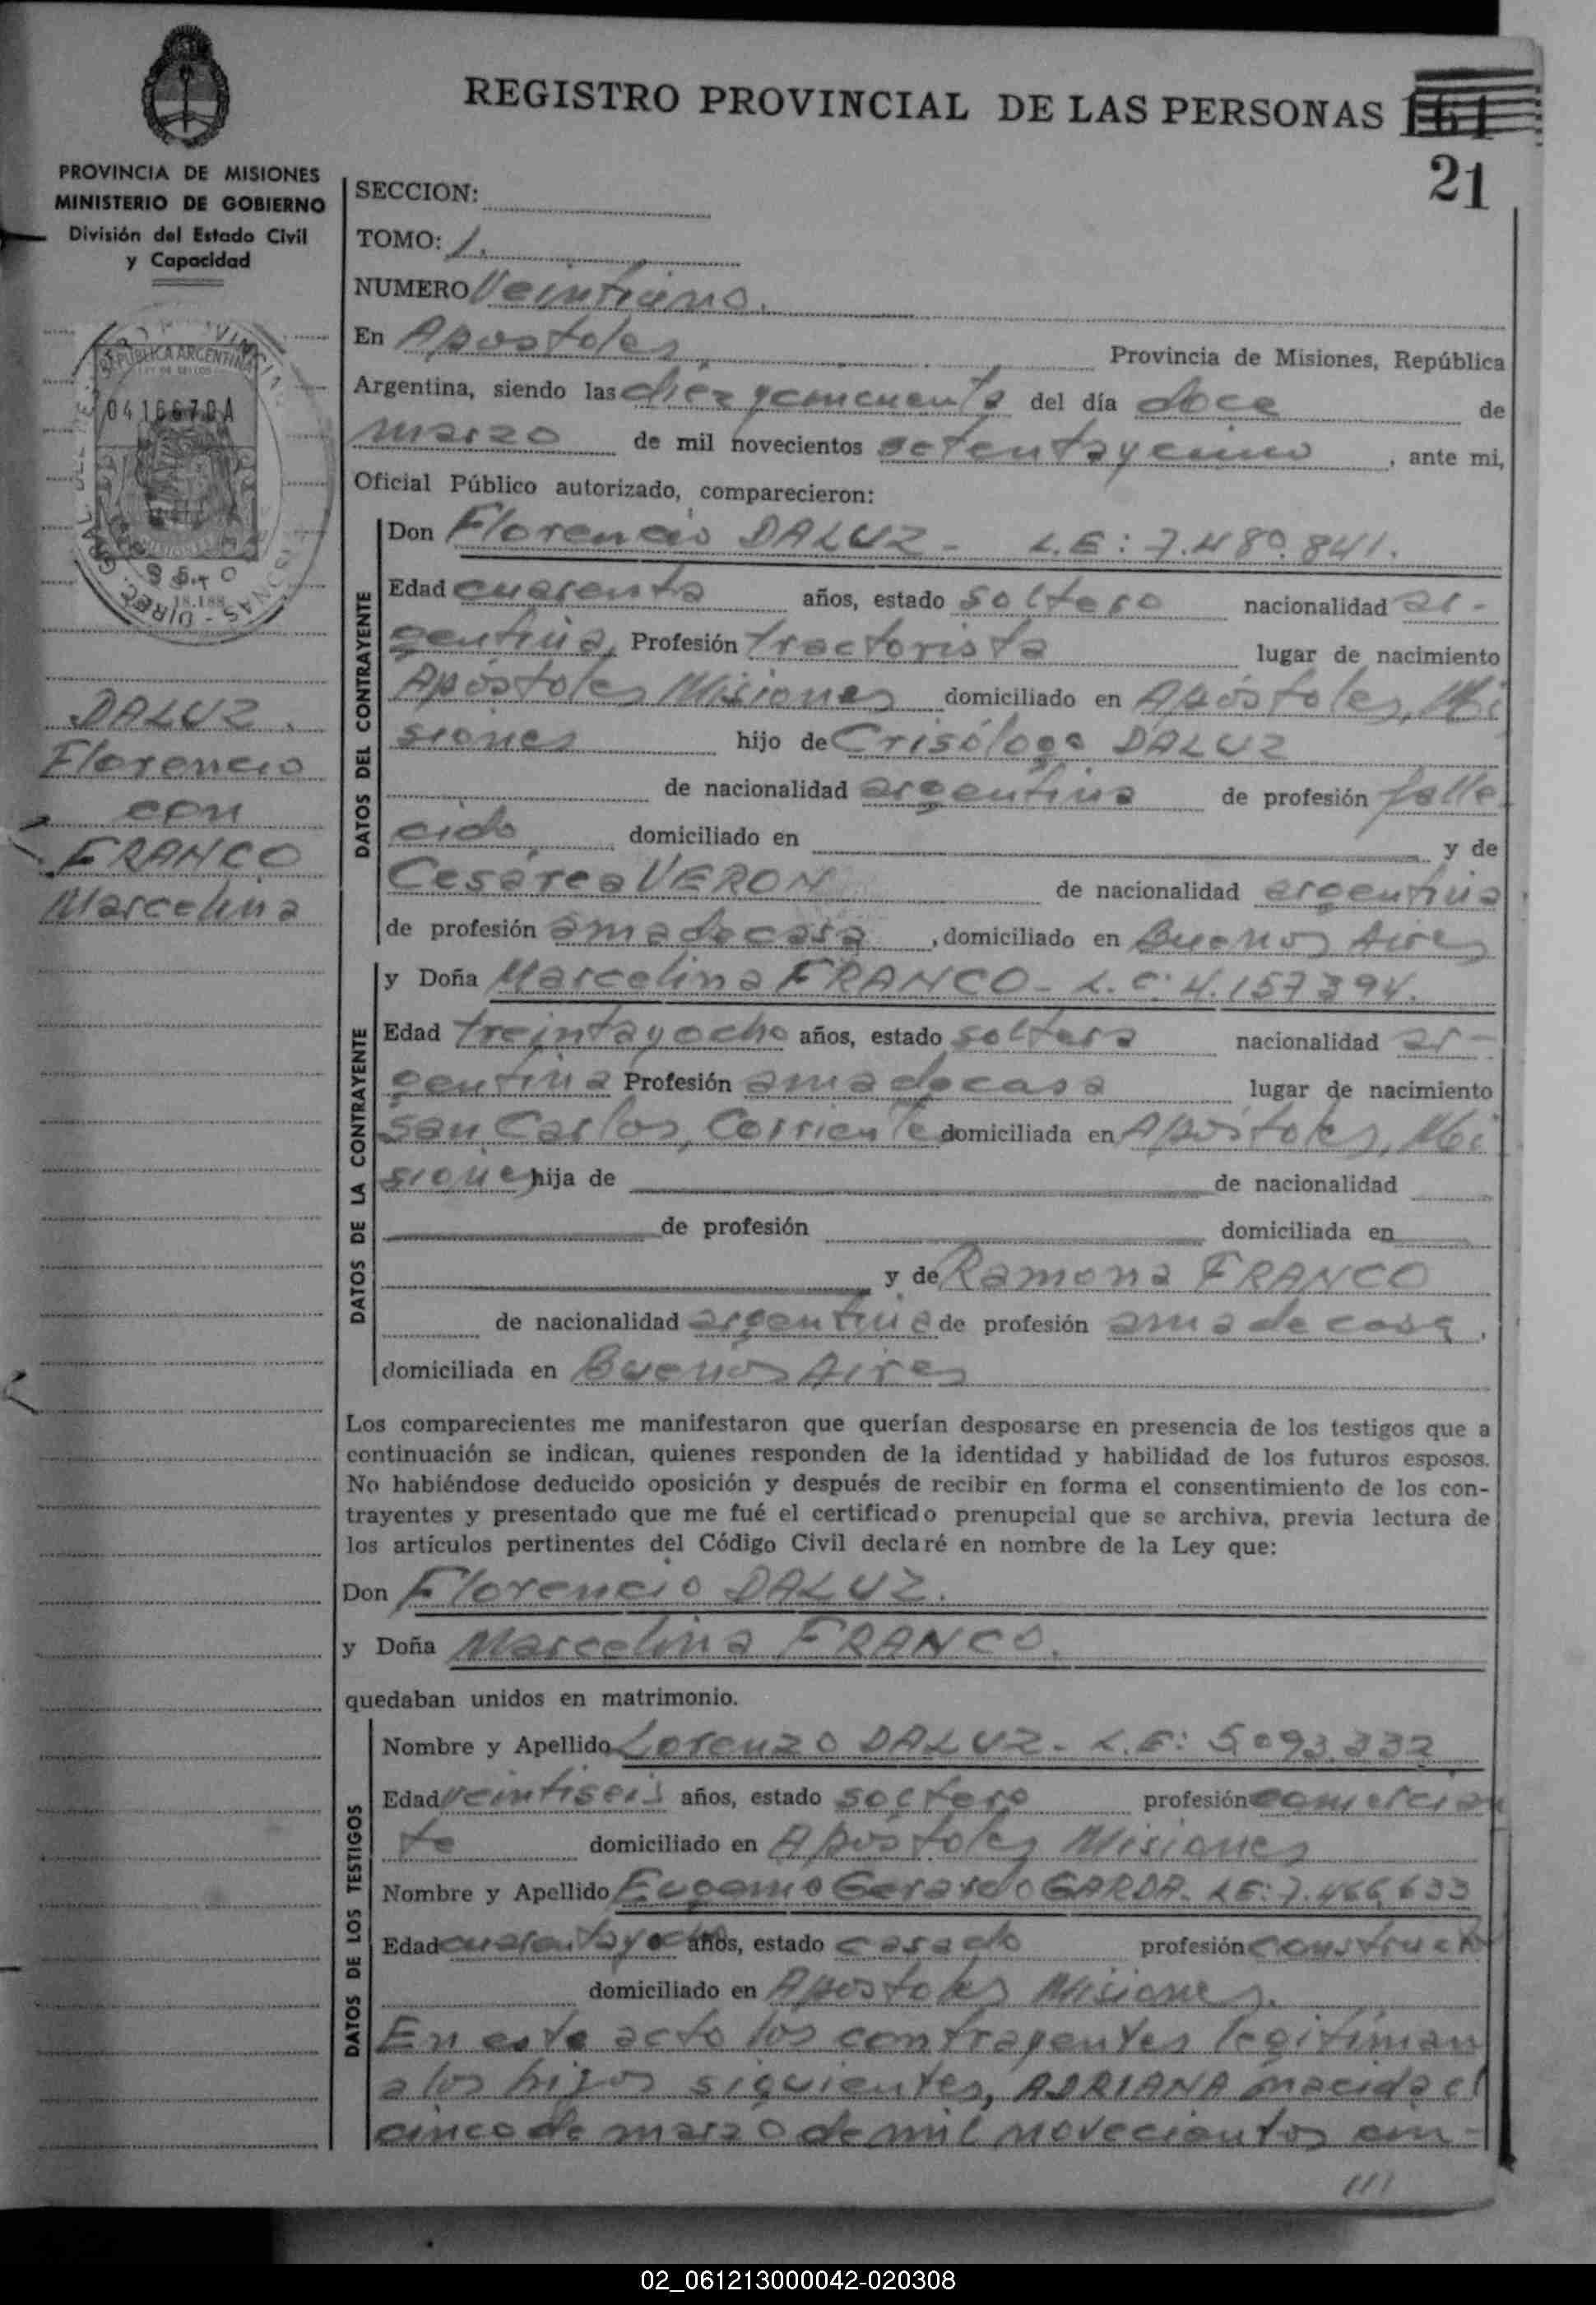 REGISTRO PROVINCIAL DE LAS PERSONAS 161
21
PROVINCIA DE MISIONES
MINISTERIO DE GOBIERNO
División del Estado Civil
y Capacidad
REPUBLICA ARGENTINA
0416670A
DALUZ.
Florencio
con
FRANCO
Marcelina
SECCION:
TOMO: 1.
NUMERO Veintiuno.
En Apostoles, Provincia de Misiones, República
Argentina, siendo las diez y cincuenta del día doce de
marzo de mil novecientos setenta y cinco, ante mi,
Oficial Público autorizado, comparecieron:
DATOS DEL CONTRAYENTE
Don Florencio DALUZ - L.E: 7.480.841.
Edad cuarenta años, estado soltero nacionalidad ar-
gentina, Profesión Tractorista lugar de nacimiento
Apóstoles Misiones domiciliado en Apóstoles, Mi
siones hijo de Crisólogo DALUZ
de nacionalidad argentina de profesión falle
cido domiciliado en y de
Cesárea VERON de nacionalidad argentina
de profesión ama de casa, domiciliado en Buenos Aires
DATOS DE LA CONTRAYENTE
y Doña Marcelina FRANCO - L.C: 4.157394.
Edad treinta y ocho años, estado soltera nacionalidad ar-
gentina Profesión ama de casa lugar de nacimiento
San Carlos, Corriente domiciliada en Apóstoles, Mi
siones hija de de nacionalidad
de profesión domiciliada en
y de Ramona FRANCO
de nacionalidad argentina de profesión ama de casa,
domiciliada en Buenos Aires
Los comparecientes me manifestaron que querían desposarse en presencia de los testigos que a
continuación se indican, quienes responden de la identidad y habilidad de los futuros esposos.
No habiéndose deducido oposición y después de recibir en forma el consentimiento de los con-
trayentes y presentado que me fué el certificado prenupcial que se archiva, previa lectura de
los artículos pertinentes del Código Civil declaré en nombre de la Ley que:
Don Florencio DALUZ.
y Doña Marcelina FRANCO.
quedaban unidos en matrimonio.
DATOS DE LOS TESTIGOS
Nombre y Apellido Lorenzo DALUZ - L.E: 5093.332
Edad veintiseis años, estado soltero profesión comercian
te domiciliado en Apóstoles Misiones
Nombre y Apellido Eugenio Gerardo GARDA. LE: 7.466,633
Edad cuarenta y ocho años, estado casado profesión constructor
domiciliado en Apostoles Misiones.
En este acto los contrayentes legitiman
a los hijos siguientes, ADRIANA nacida el
cinco de marzo de mil novecientos cin-
///
02_061213000042-020308